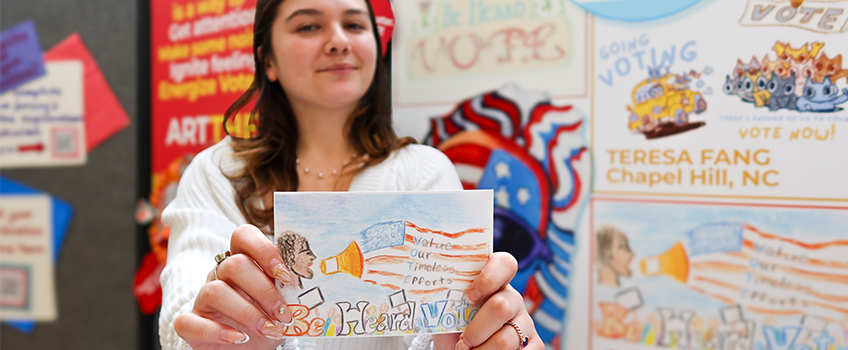 is a way
Get attention
Make some noise
Ignite feeling
Energize Vote
ART
Be Heard
VOTE
VOTE
GOING
VOTING
VOTE NOW!
TERESA FANG
Chapel Hill, NC
Value
Our
Timeless
Efforts
Be Heard Vote
Value
Our
Timeless
Efforts
Be Heard Vot